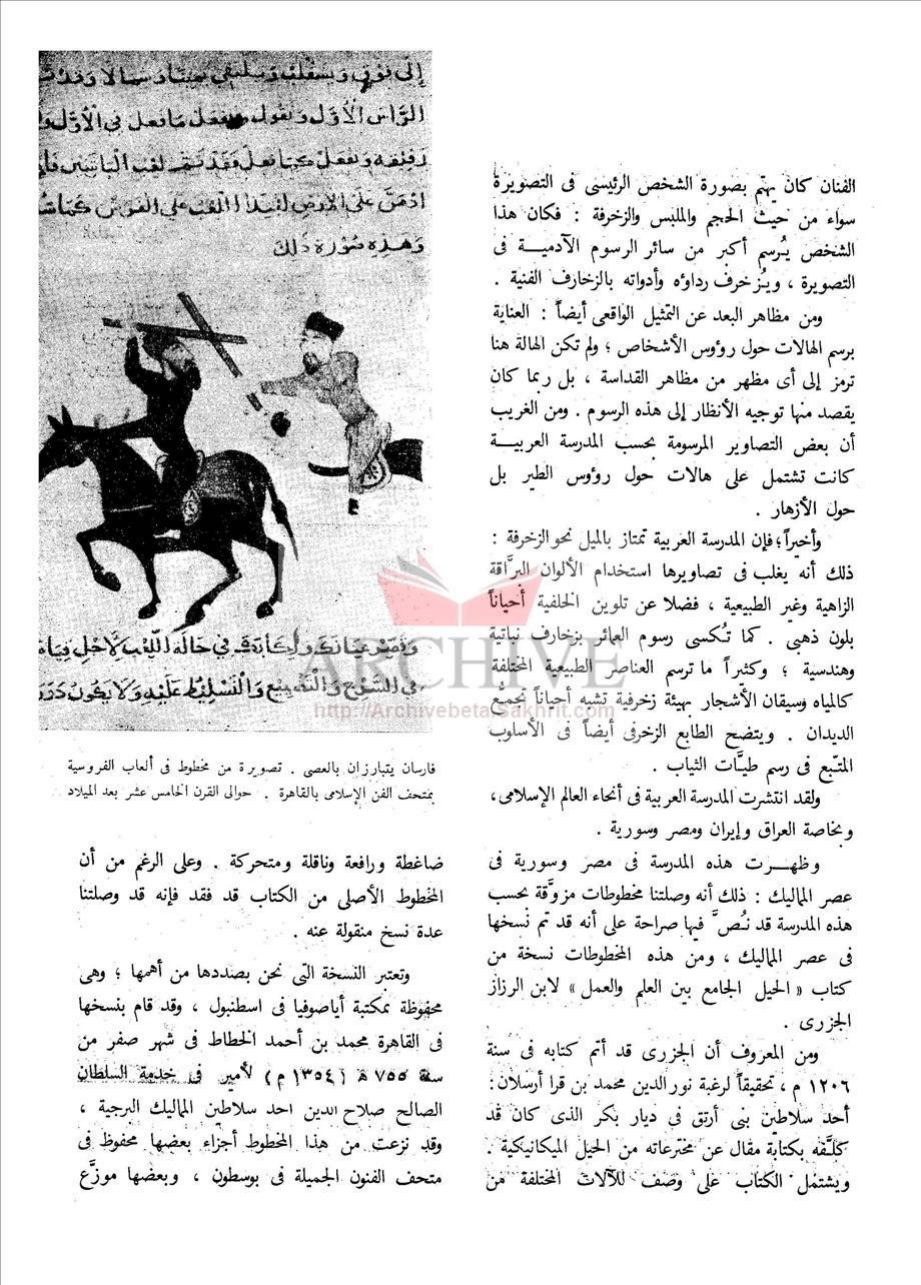 الفنان كان يهتم بصورة الشخص الرئيسى فى التصويرة
سواء من حيث الحجم والملبس والزخرفة : فكان هذا
الشخص يُرسم أكبر من سائر الرسوم الآدميــة فى
التصويرة ، ويُزخرف رداؤه وأدواته بالزخارف الفنية .
ومن مظاهر البعد عن التمثيل الواقعى أيضاً : العناية
برسم الهالات حول رؤوس الأشخاص ؛ ولم تكن الهالة هنا
ترمز إلى أى مظهر من مظاهر القداسة ، بل ربما كان
يقصد منها توجيه الأنظار إلى هذه الرسوم . ومن الغريب
أن بعض التصاوير المرسومة بحسب المدرسة العربيــة
كانت تشتمل على هالات حول رؤوس الطير بل
حول الأزهار .
وأخيراً؛ فإن المدرسة العربية تمتاز بالميل نحو الزخرفة :
ذلك أنه يغلب فى تصاويرها استخدام الألوان البرَّاقة
الزاهية وغير الطبيعية ، فضلا عن تلوين الخلفية أحياناً
بلون ذهبى . كما تُكسى رسوم العمائر بزخارف نباتية
وهندسية ؛ وكثيراً ما ترسم العناصر الطبيعية المختلفة
كالمياه وسيقان الأشجار بهيئة زخرفية تشبه أحياناً تجمُّع
الديدان . ويتضح الطابع الزخرفى أيضاً فى الأسلوب
المتّبع فى رسم طيَّات الثياب .
ولقد انتشرت المدرسة العربية فى أنحاء العالم الإسلامى،
وبخاصة العراق وإيران ومصر وسورية .
وظهــرت هذه المدرسة فى مصر وسورية فى
عصر المماليك : ذلك أنه وصلتنا مخطوطات مزوَّقة بحسب
هذه المدرسة قد نُصَّ فيها صراحة على أنه قد تم نسخها
فى عصر المماليك ، ومن هذه المخطوطات نسخة من
كتاب « الحيل الجامع بين العلم والعمل » لابن الرزاز
الجزرى .
ومن المعروف أن الجزرى قد أتم كتابه فى سنة
١٢٠٦ م ، تحقيقاً لرغبة نور الدين محمد بن قرا أرسلان:
أحد سلاطين بنى أرتق فى ديار بكر الذى كان قد
كلَّفه بكتابة مقال عن مخترعاته من الحيل الميكانيكية .
ويشتمل الكتاب على وصف للآلات المختلفة من
وهذه صورة ذلك
ARCHIVE
http://Archivebeta.Sakhrit.com
فارسان يتبارزان بالعصى . تصويرة من مخطوط فى ألعاب الفروسية
بمتحف الفن الإسلامى بالقاهرة . حوالى القرن الخامس عشر بعد الميلاد
ضاغطة ورافعة وناقلة ومتحركة . وعلى الرغم من أن
المخطوط الأصلى من الكتاب قد فقد فإنه قد وصلتنا
عدة نسخ منقولة عنه .
وتعتبر النسخة التى نحن بصددها من أهمها ؛ وهى
محفوظة بمكتبة أياصوفيا فى اسطنبول ، وقد قام بنسخها
فى القاهرة محمد بن أحمد الخطاط فى شهر صفر من
سنة ٧٥٥ هـ (١٣٥٤ م) لأمير فى خدمة السلطان
الصالح صلاح الدين احد سلاطين المماليك البرجية ،
وقد نزعت من هذا المخطوط أجزاء بعضها محفوظ فى
متحف الفنون الجميلة فى بوسطون ، وبعضها موزَّع